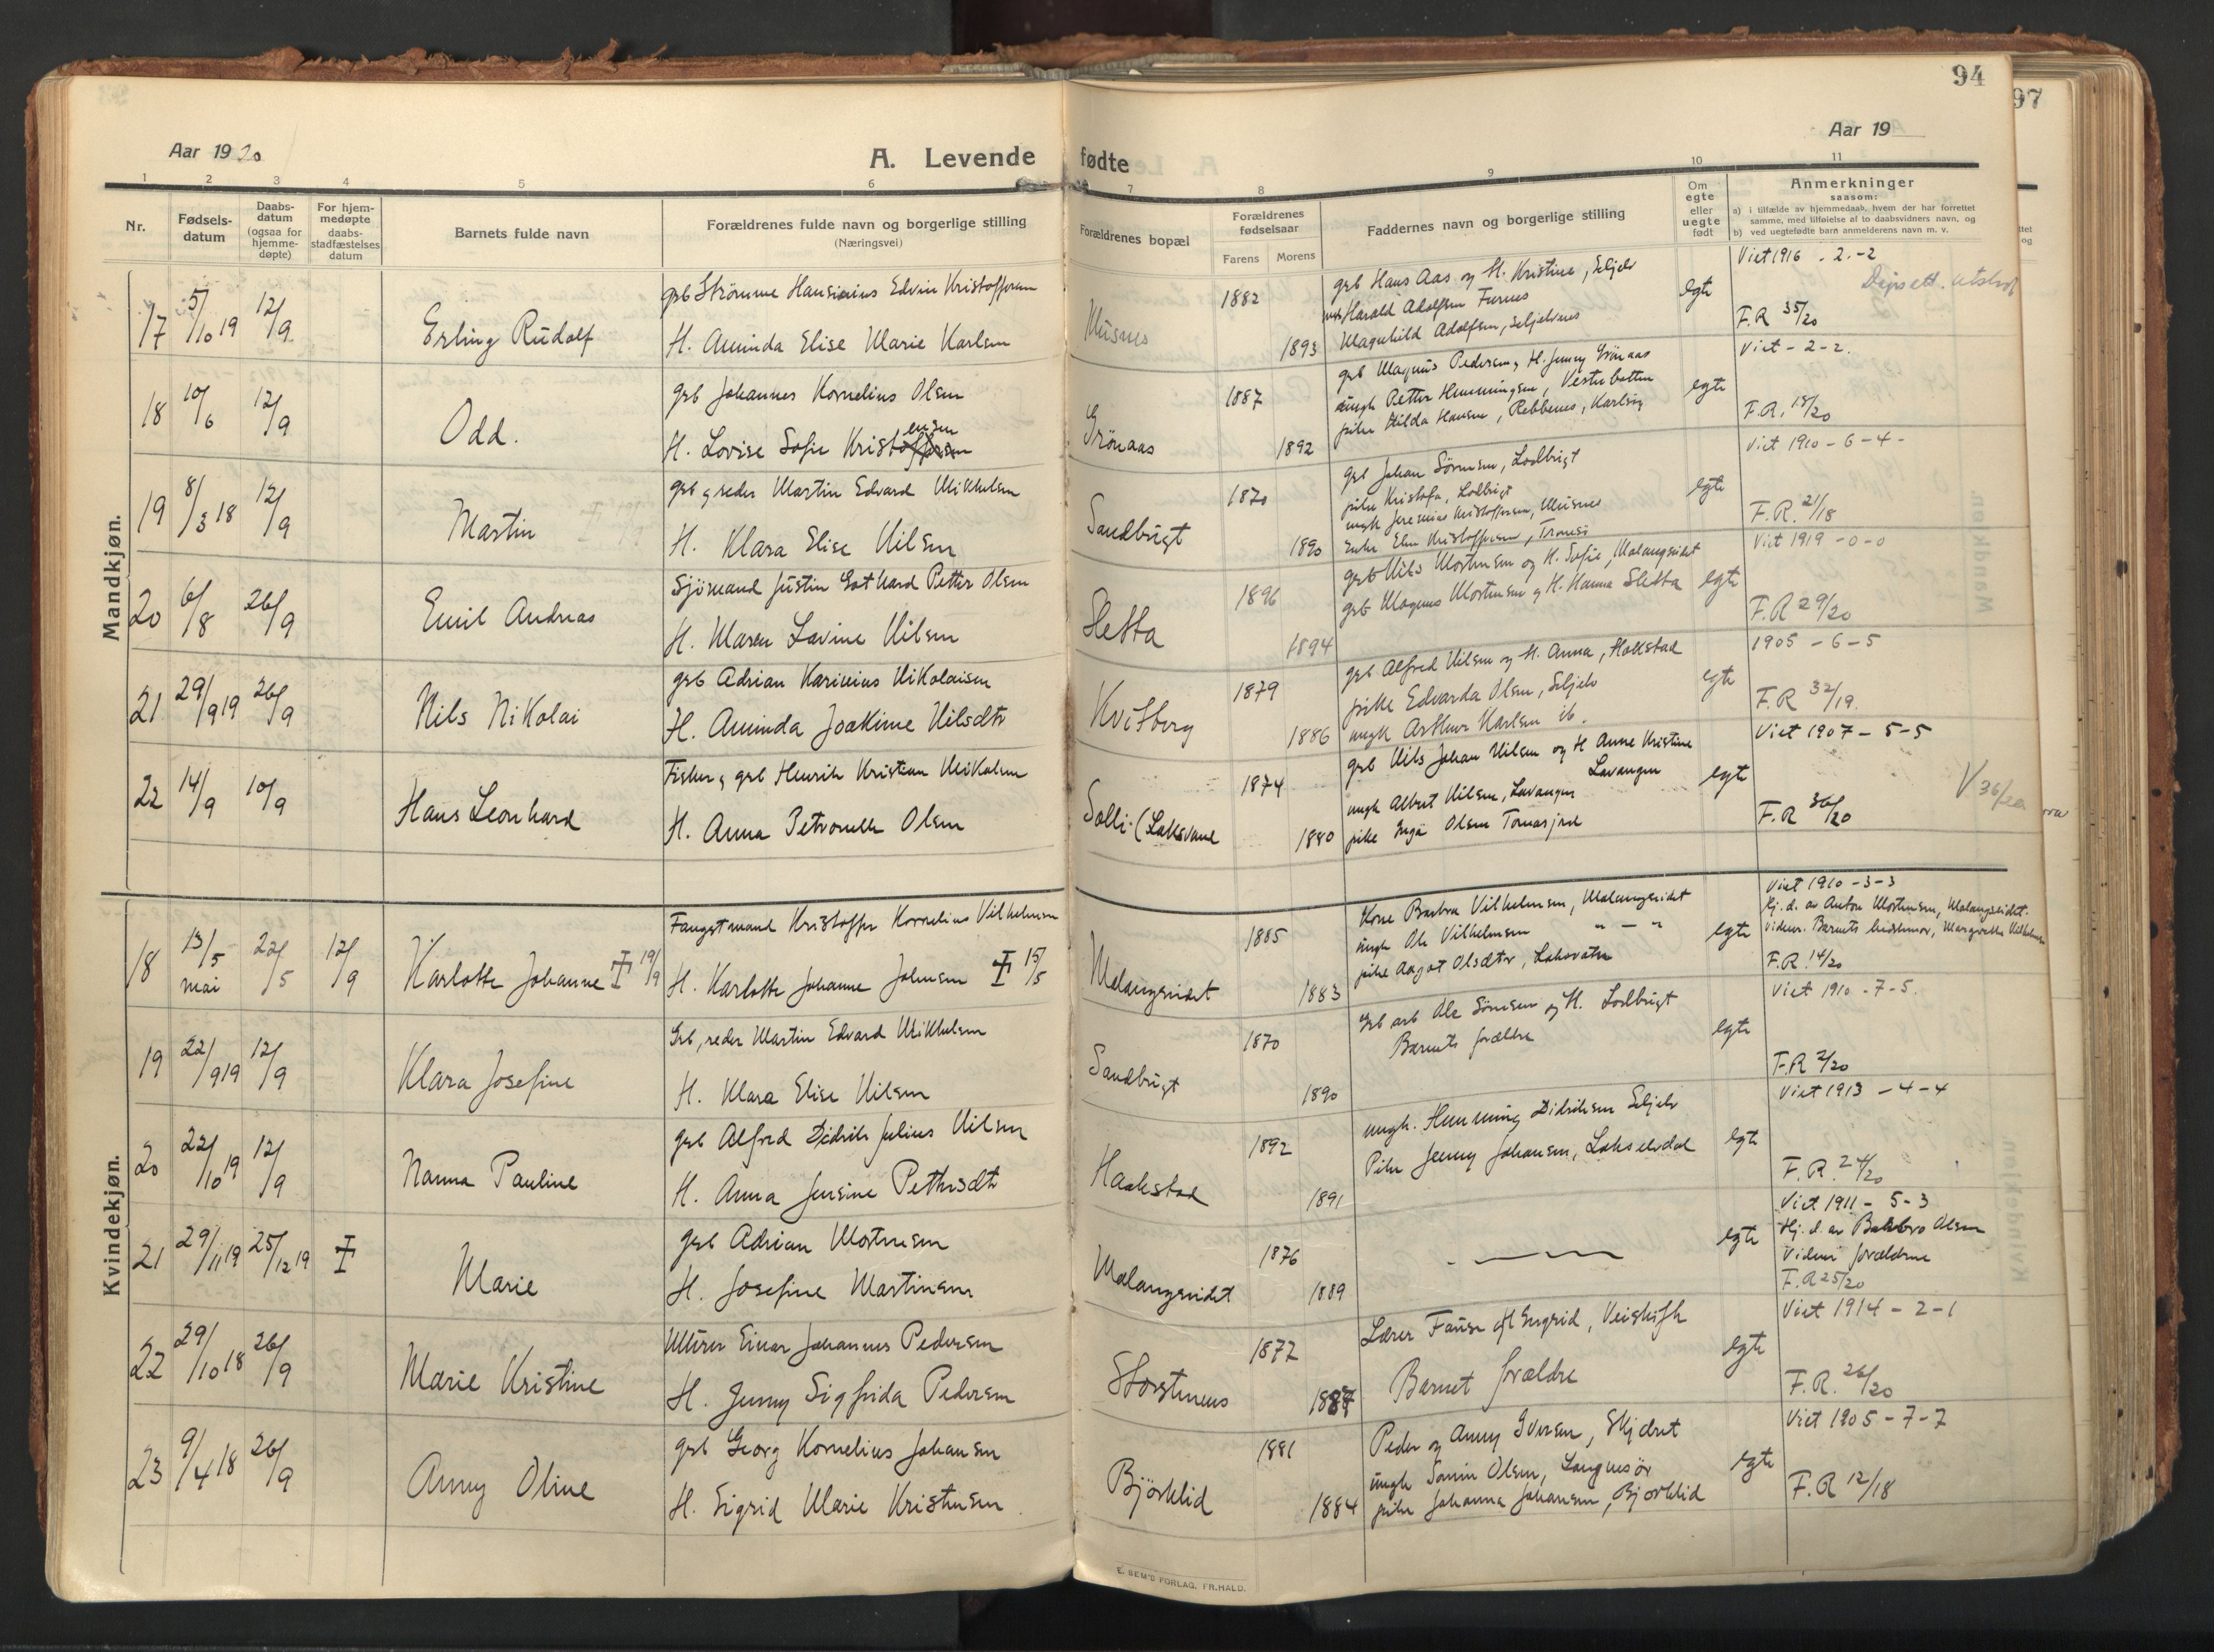 94
97
Aar 1920
A. Levende fødte
Aar 19
1 2 3 4 5 6 7 8 9 10 11
Nr.
Fødsels-
datum
Daabs-
datum
(ogsaa for
hjemme-
døpte)
For hjem-
medøpte
daabs-
stadfæstelses
datum
Barnets fulde navn
Forældrenes fulde navn og borgerlige stilling
(Næringsvei)
Forældrenes bopæl
Forældrenes
fødselsaar
Farens Morens
Faddernes navn og borgerlige stilling
Om
egte
eller
uegte
født
Anmerkninger
saasom:
a) i tilfælde av hjemmedaab, hvem der har forrettet
samme, med tilføielse af to daabsvidners navn, og
b) ved uegtefødte barn anmelderens navn m. v.
Mandkjøn.
17 5/10 19 12/9 Erling Rudolf
grb Strömme Hansinius Edvin Kristoffersen
H. Aminda Elise Marie Karlsen
1882
1893
grb Hans Aas og H. Kristine, Seljelv
Harald Adolfsen Furnes
Magnhild Adolfsen, Seljelvnes
egte
Viet 1916 . 2. -2
F.R 35/20
18 10/6 12/9 Odd.
grb Johannes Kornelius Olsen
H. Lovise Sofie Kristensen
Grönaas
1887
1892
grb Magnus Pedersen, H. Jenny Grönaas
ungk Petter Henningsen, Vesterbotten
pike Hilda Hansen, Rebbenes, Karlsøy
egte
Viet - 2 - 2.
F.R. 18/20
19 8/3 18 12/9 Martin
grb og reder Martin Edvard Mikkelsen
H. Klara Elise Nilsen
Sandbugt
1870
1890
grb Johan Sörensen, Lodbugt
pike Kristofa, Lodbugt
ungk Jeremias Kristoffersen, Musnes
Enke Elen Kristoffersen, Tromsö
egte
Viet 1910 - 6 - 4 -
F.R. 21/18
20 6/8 26/9 Emil Andreas
Sjömand Justin Gothard Petter Olsen
H. Maren Lavine Nilsen
Sletta
1896
1894
grb Nils Mortensen og H. Sofie, Malangseidet
grb Magnus Mortensen og H. Hanna Sletta
egte
Viet 1919 - 0 - 0
F.R 29/20
21 29/9 19 26/9 Nils Nikolai
grb Adrian Karinius Nikolaisen
H. Aminda Joakime Nilsdtr
Kvitberg
1879
1886
grb Alfred Nilsen og H. Anna, Hakstad
pike Edvarda Olsen, Seljelv
ungk Arthur Karlsen ib.
egte
1905 - 6 - 5
F.R 32/19.
22 14/9 10/9 Hans Leonhard
Fisker, grb Henrik Kristian Nikolaisen
H. Anna Petronelle Olsen
Solli (Laksvand
1874
1880
grb Nils Johan Nilsen og H Anne Kristine
Lavangen
ungk Albert Nilsen, Lavangen
pike Inga Olsen Tomasjord
egte
Viet 1907 - 5 - 5
F.R 36/20
V 36/20
Kvindekjøn.
18 13/5 mai 22/5 12/9 Karlotte Johanne 19/9
Fangstmand Kristoffer Kornelius Vilhelmsen
H. Karlotte Johanne Johnsen 15/5
Malangseidet
1885
1883
Kone Barbra Vilhelmsen, Malangseidet
ungk Ole Vilhelmsen " - "
pike Aagot Olsdtr, Laksvatn
egte
Viet 1910 - 3 - 3
Hj. d. av Anton Mortensen, Malangseidet.
Barnets bedstemor, Margrethe Vilhelmsen
F.R. 14/20
19 22/9 19 12/9 Klara Josefine
Grb, reder Martin Edvard Mikkelsen
H. Klara Elise Nilsen
Sandbugt
1870
1890
Grb arb Ole Sörensen og H. Lodbugt
Barnets forældre
egte
Viet 1910 - 7 - 5.
F.R 2/20
20 22/10 19 12/9 Nanna Pauline
grb Alfred Didrik Julius Nilsen
H. Anna Jensine Pettersdtr
Haakstad
1892
1891
ungk. Henning Didriksen Seljelv
Pike Jenny Johansen, Lakselvdal
egte
Viet 1913 - 4 - 4
F.R. 24/20
21 29/11 19 25/12 19 Marie
grb Adrian Mortensen
H. Josefine Martinsen
Malangseidet
1876
1889
egte
Viet 1911 - 5 - 3
Hj. d. av Olsen
Vidner forældrene
F.R 25/20
22 29/10 18 26/9 Marie Kristine
Murer Einar Johannes Pedersen
H. Jenny Sigfrida Pedersen
Storstennes
1877
1887
Lærer H Ingrid,
Barnet forældre
egte
Viet 1914 - 2 - 1
F.R. 26/20
23 9/4 18 26/9 Anny Oline
grb Georg Kornelius Johansen
H. Sigrid Marie Kristensen
Björklid
1881
1884
Peder og Anny Iversen,
ungk Olsen, Langnesör
pike Johanna Johansen, Bjorklid
egte
Viet 1905 - 7 - 7
F.R 12/18
E. SEM'S FORLAG, FR.HALD.